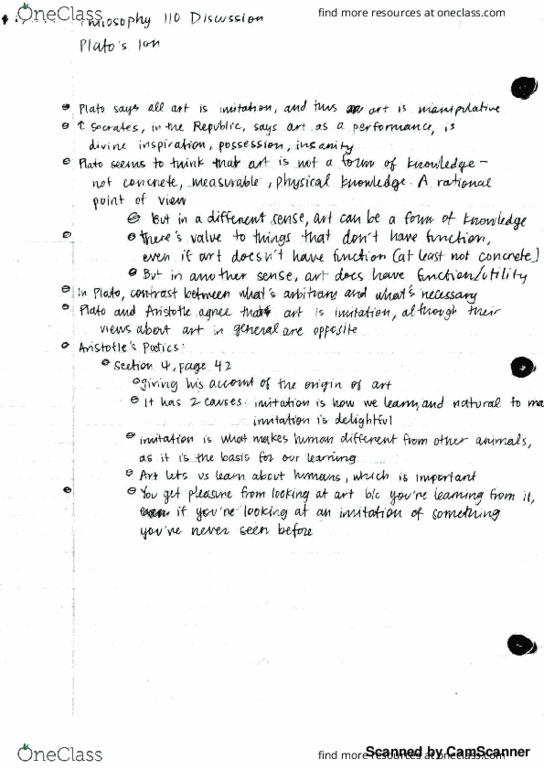 OneClass
find more resources at oneclass.com
Philosophy 110 Discussion
Plato's Ion
Plato says all art is imitation, and thus art is manipulative
↑ Socrates, in the Republic, says art as a performance, is
divine inspiration, possession, insanity
Plato seems to think that art is not a form of knowledge –
not concrete, measurable, physical knowledge. A rational
point of view
But in a different sense, art can be a form of knowledge
There's value to things that don't have function,
even if art doesn't have function (at least not concrete)
But in another sense, art does have function/utility
In Plato, contrast between what's arbitrary and what's necessary
Plato and Aristotle agree that art is imitation, although their
views about art in general are opposite
Aristotle's Poetics:
Section 4, page 42
giving his account of the origin of art
It has 2 causes: imitation is how we learn, and natural to ma
imitation is delightful
imitation is what makes human different from other animals,
as it is the basis for our learning
Art lets us learn about humans, which is important
You get pleasure from looking at art b/c you're learning from it,
if you're looking at an imitation of something
you've never seen before
OneClass
find more resources at oneclass.com
Scanned by CamScanner